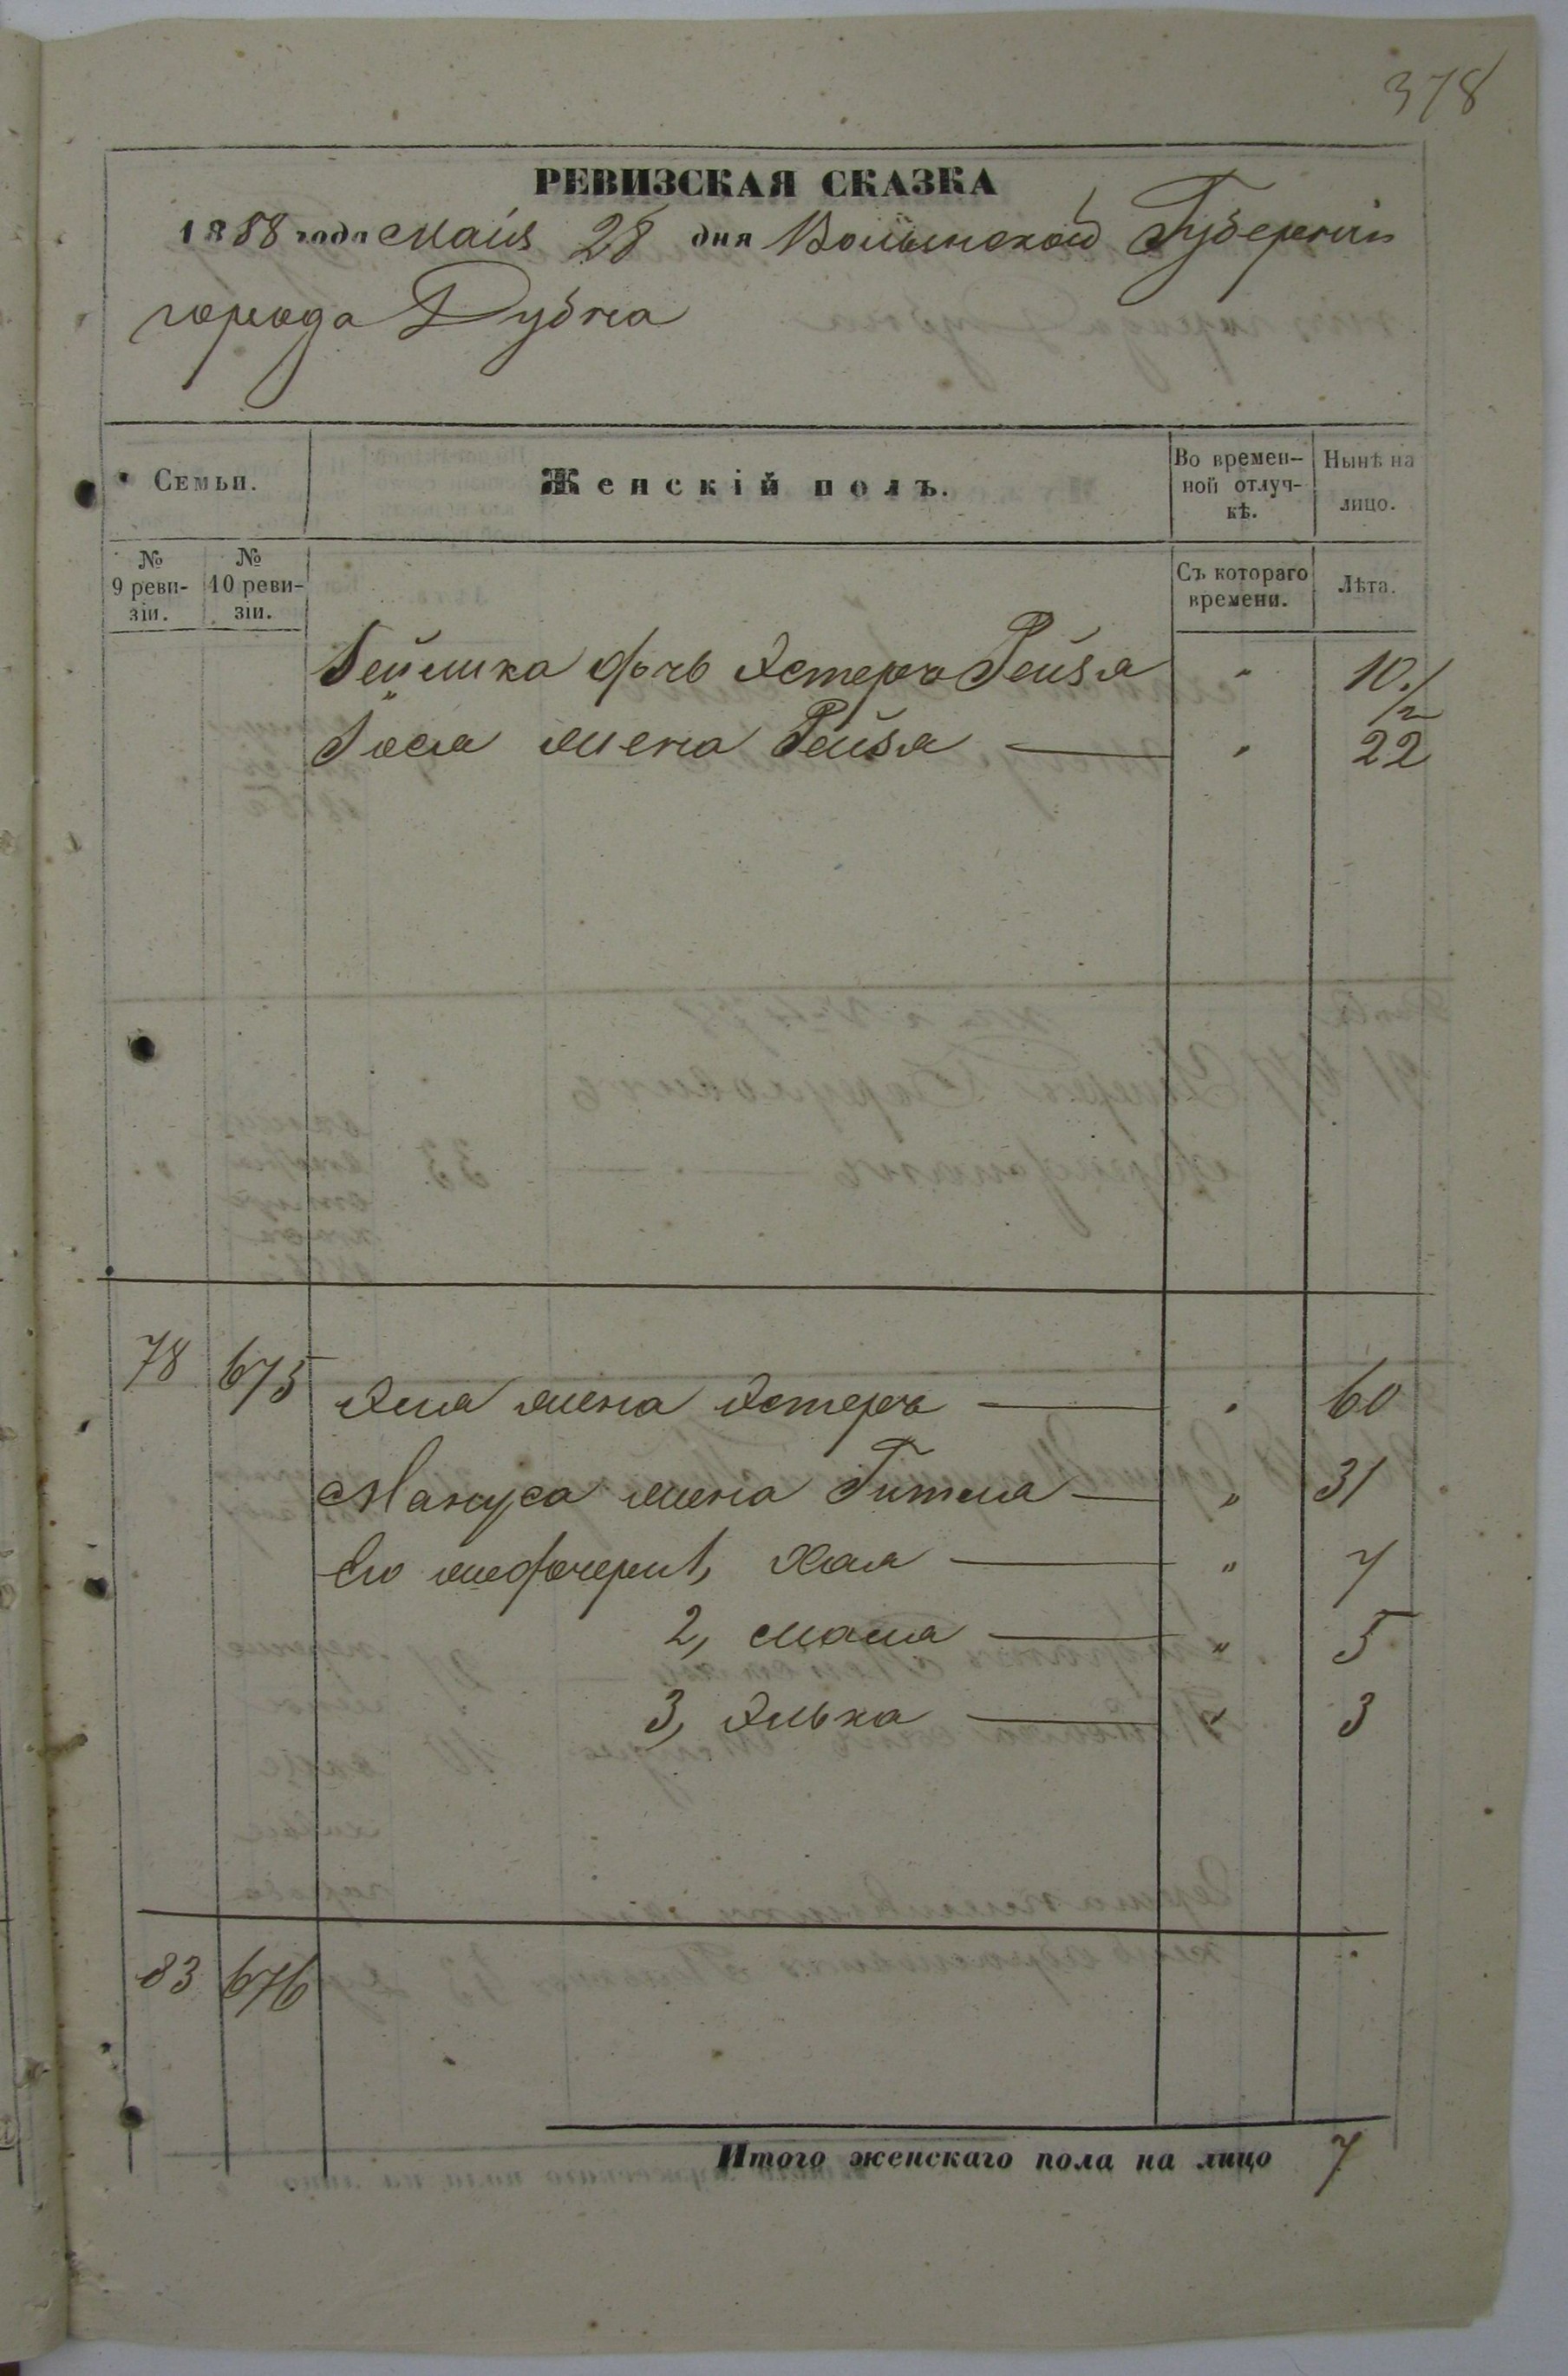 378
РЕВИЗСКАЯ СКАЗКА
1858 года Маія 28 дня Волынской Губерніи
города Дубна
Семьи.
Женскій полъ.
Во времен-
ной отлуч-
кѣ.
Нынѣ на
лицо.
№
9 реви-
зіи.
№
10 реви-
зіи.
Съ котораго
времени.
Лѣта.
Бейлика дочь Эстеръ Рейзя " 10 1/2
Іося жена Рейзя — " 22
78 675 жена Эстеръ — " 60
Мануса жена Гитля — " 31
Его же дочери 1, Хая — " 7
2, Маля — " 5
3, Элька — " 3
83 676
Итого женскаго пола на лицо 7